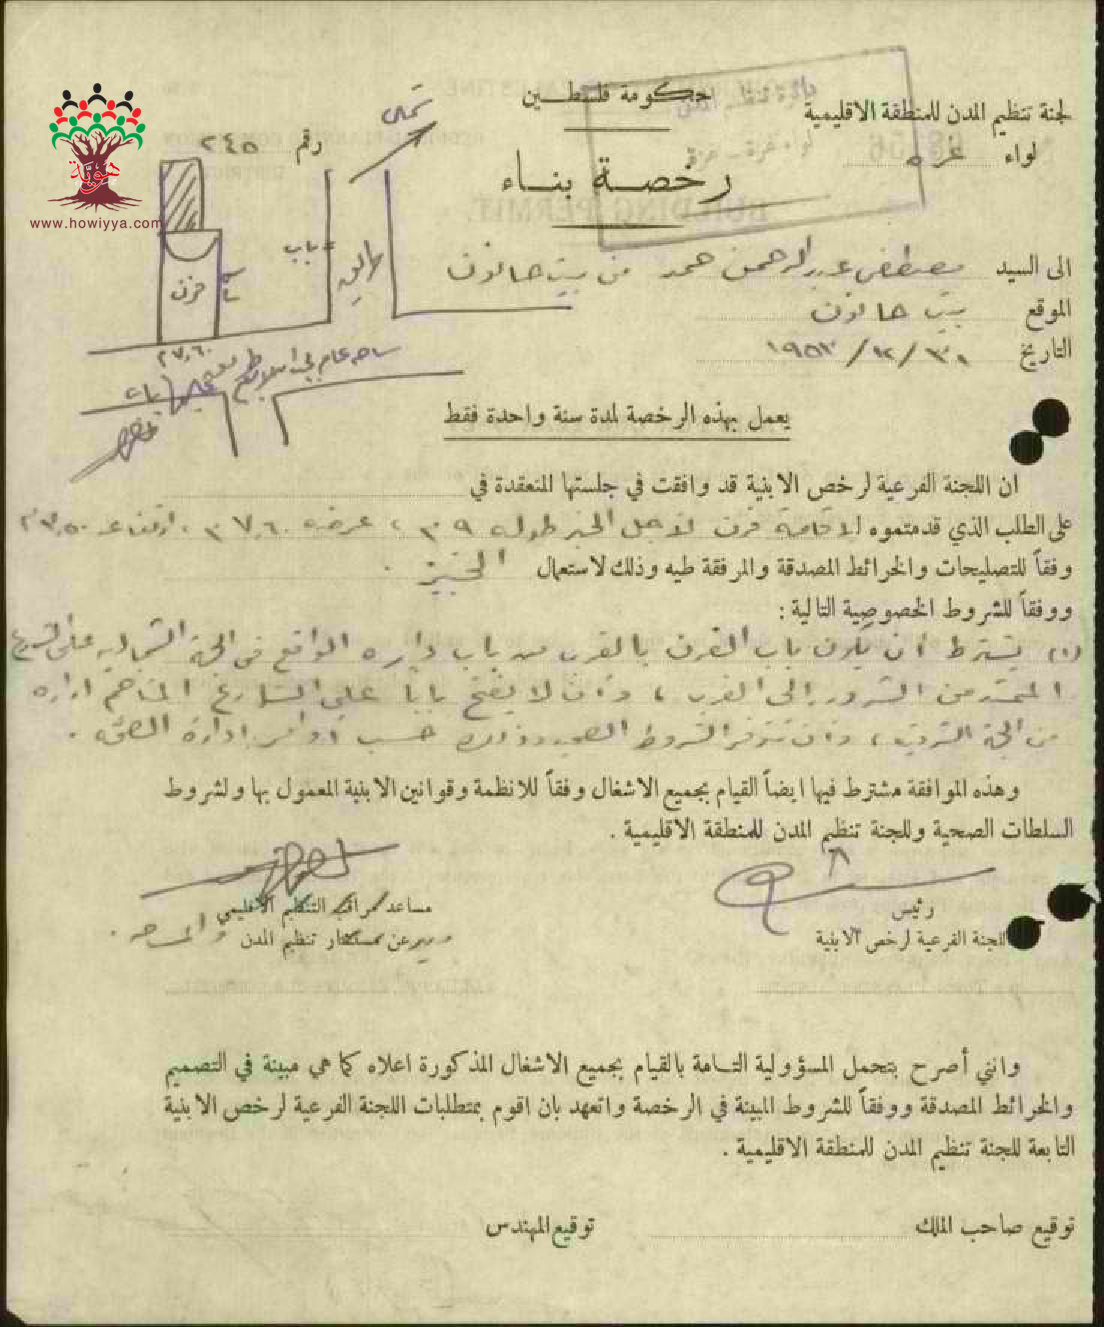 حكومة فلسطين
لجنة تنظيم المدن للمنطقة الاقليمية
لواء غزه
رقم ٢٤٥
رخصة بناء
هوية
www.howiyya.com
باب
فرن
٣٧,٦٠
الى السيد مصطفى عبد الرحمن حمد من بيت حانون
الموقع بيت حانون
التاريخ ٣١/١٢/١٩٥٣
يعمل بهذه الرخصة لمدة سنة واحدة فقط
ان اللجنة الفرعية لرخص الابنية قد وافقت في جلستها المنعقدة في
على الطلب الذي قدمتموه لاقامة فرن لاجل الخبز طوله ٣٩ ، عرضه ٣٧,٦٠ ، ارتفاعه
وفقاً للتصليحات والخرائط المصدقة والمرفقة طيه وذلك لاستعمال الخبيز .
ووفقاً للشروط الخصوصية التالية :
(١) يشترط أن يكون باب الفرن بالقرب من باب داره الواقع في الجهة الشماليه على الشارع
الممتد من الشرق إلى الغرب ، وأن لا يفتح باباً على الشارع المتاخم لداره
من الجهة الشرقية ، وان تتوفر الشروط الصحيه وذلك حسب اوامر ادارة الصحة .
وهذه الموافقة مشترط فيها ايضاً القيام بجميع الاشغال وفقاً للانظمة وقوانين الابنية المعمول بها ولشروط
السلطات الصحية وللجنة تنظيم المدن للمنطقة الاقليمية .
رئيس
اللجنة الفرعية لرخص الابنية
مساعد مراقب التنظيم الاقليمي
عن مستشار تنظيم المدن والمساحه .
وانني أصرح بتحمل المسؤولية التامة بالقيام بجميع الاشغال المذكورة اعلاه كما هي مبينة في التصميم
والخرائط المصدقة ووفقاً للشروط المبينة في الرخصة واتعهد بان اقوم بمتطلبات اللجنة الفرعية لرخص الابنية
التابعة للجنة تنظيم المدن للمنطقة الاقليمية .
توقيع صاحب الملك
توقيع المهندس